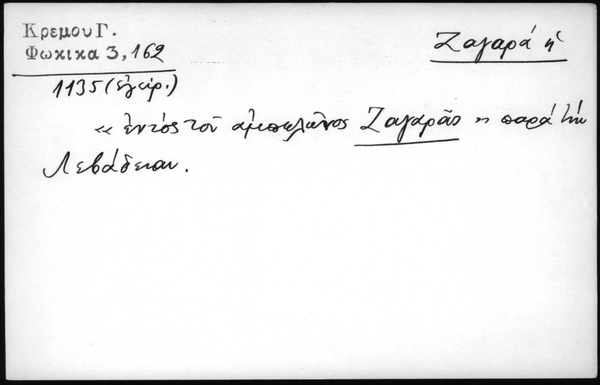 Κρεμου Γ.
Φωκικα 3, 162
Ζαγαρά ἡ
1135 (ἐγειρ.)
« ἐντὸς τοῦ ἀμπελῶνος Ζαγαρᾶς » παρὰ τὴν
Λεβάδειαν.